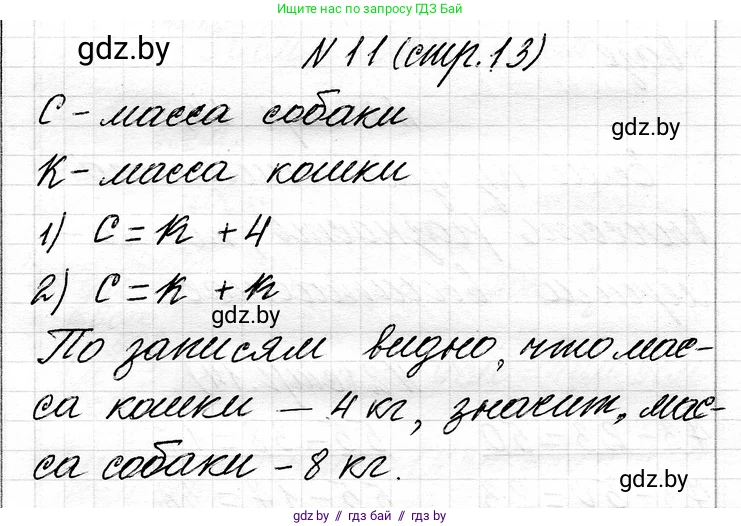 Ищите нас по запросу ГДЗ Бай
gdz.by
N 11 (стр.13)
С - масса собаки
gdz.by
К - масса кошки
1) С = К + 4
2) С = К + К
gdz.by
По записям видно, что мас-
са кошки — 4 кг, значит, мас-
са собаки - 8 кг.
gdz.by
gdz.by // гдз бай // gdz.by